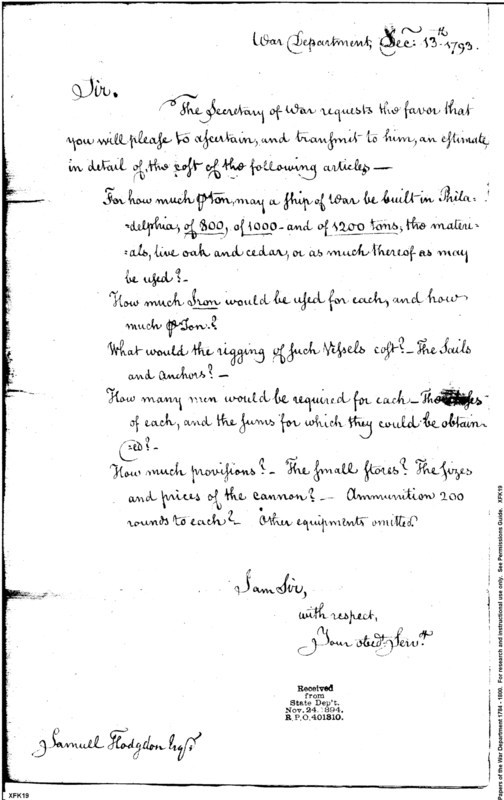 War Department, Dec: 13th 1793.
Sir.
The Secretary of War requests the favor that
you will please to ascertain, and transmit to him, an estimate
in detail of, the cost of the following articles —
For how much ⅌ ton, may a ship of War be built in Phila-
=delphia, of 800, of 1000 - and of 1200 tons, the materi-
=als, live oak and cedar, or as much thereof as may
be used? -
How much Iron would be used for each, and how
much ⅌ Ton?
What would the rigging of such Vessels cost? - The Sails
and anchors? -
How many men would be required for each - The
of each, and the sums for which they could be obtain-
=ed? -
How much provisions? - The small stores? The sizes
and prices of the cannon? - - Ammunition 200
rounds to each? Other equipments omitted
I am Sir,
with respect,
Your obedt Servt.
Received
from
State Dep't.
Nov. 24. 1894.
R.P.O. 401810.
Samuel Hodgdon Esqr.
XFK19
Papers of the War Department 1784 - 1800. For research and instructional use only. See Permissions Guide. XFK19